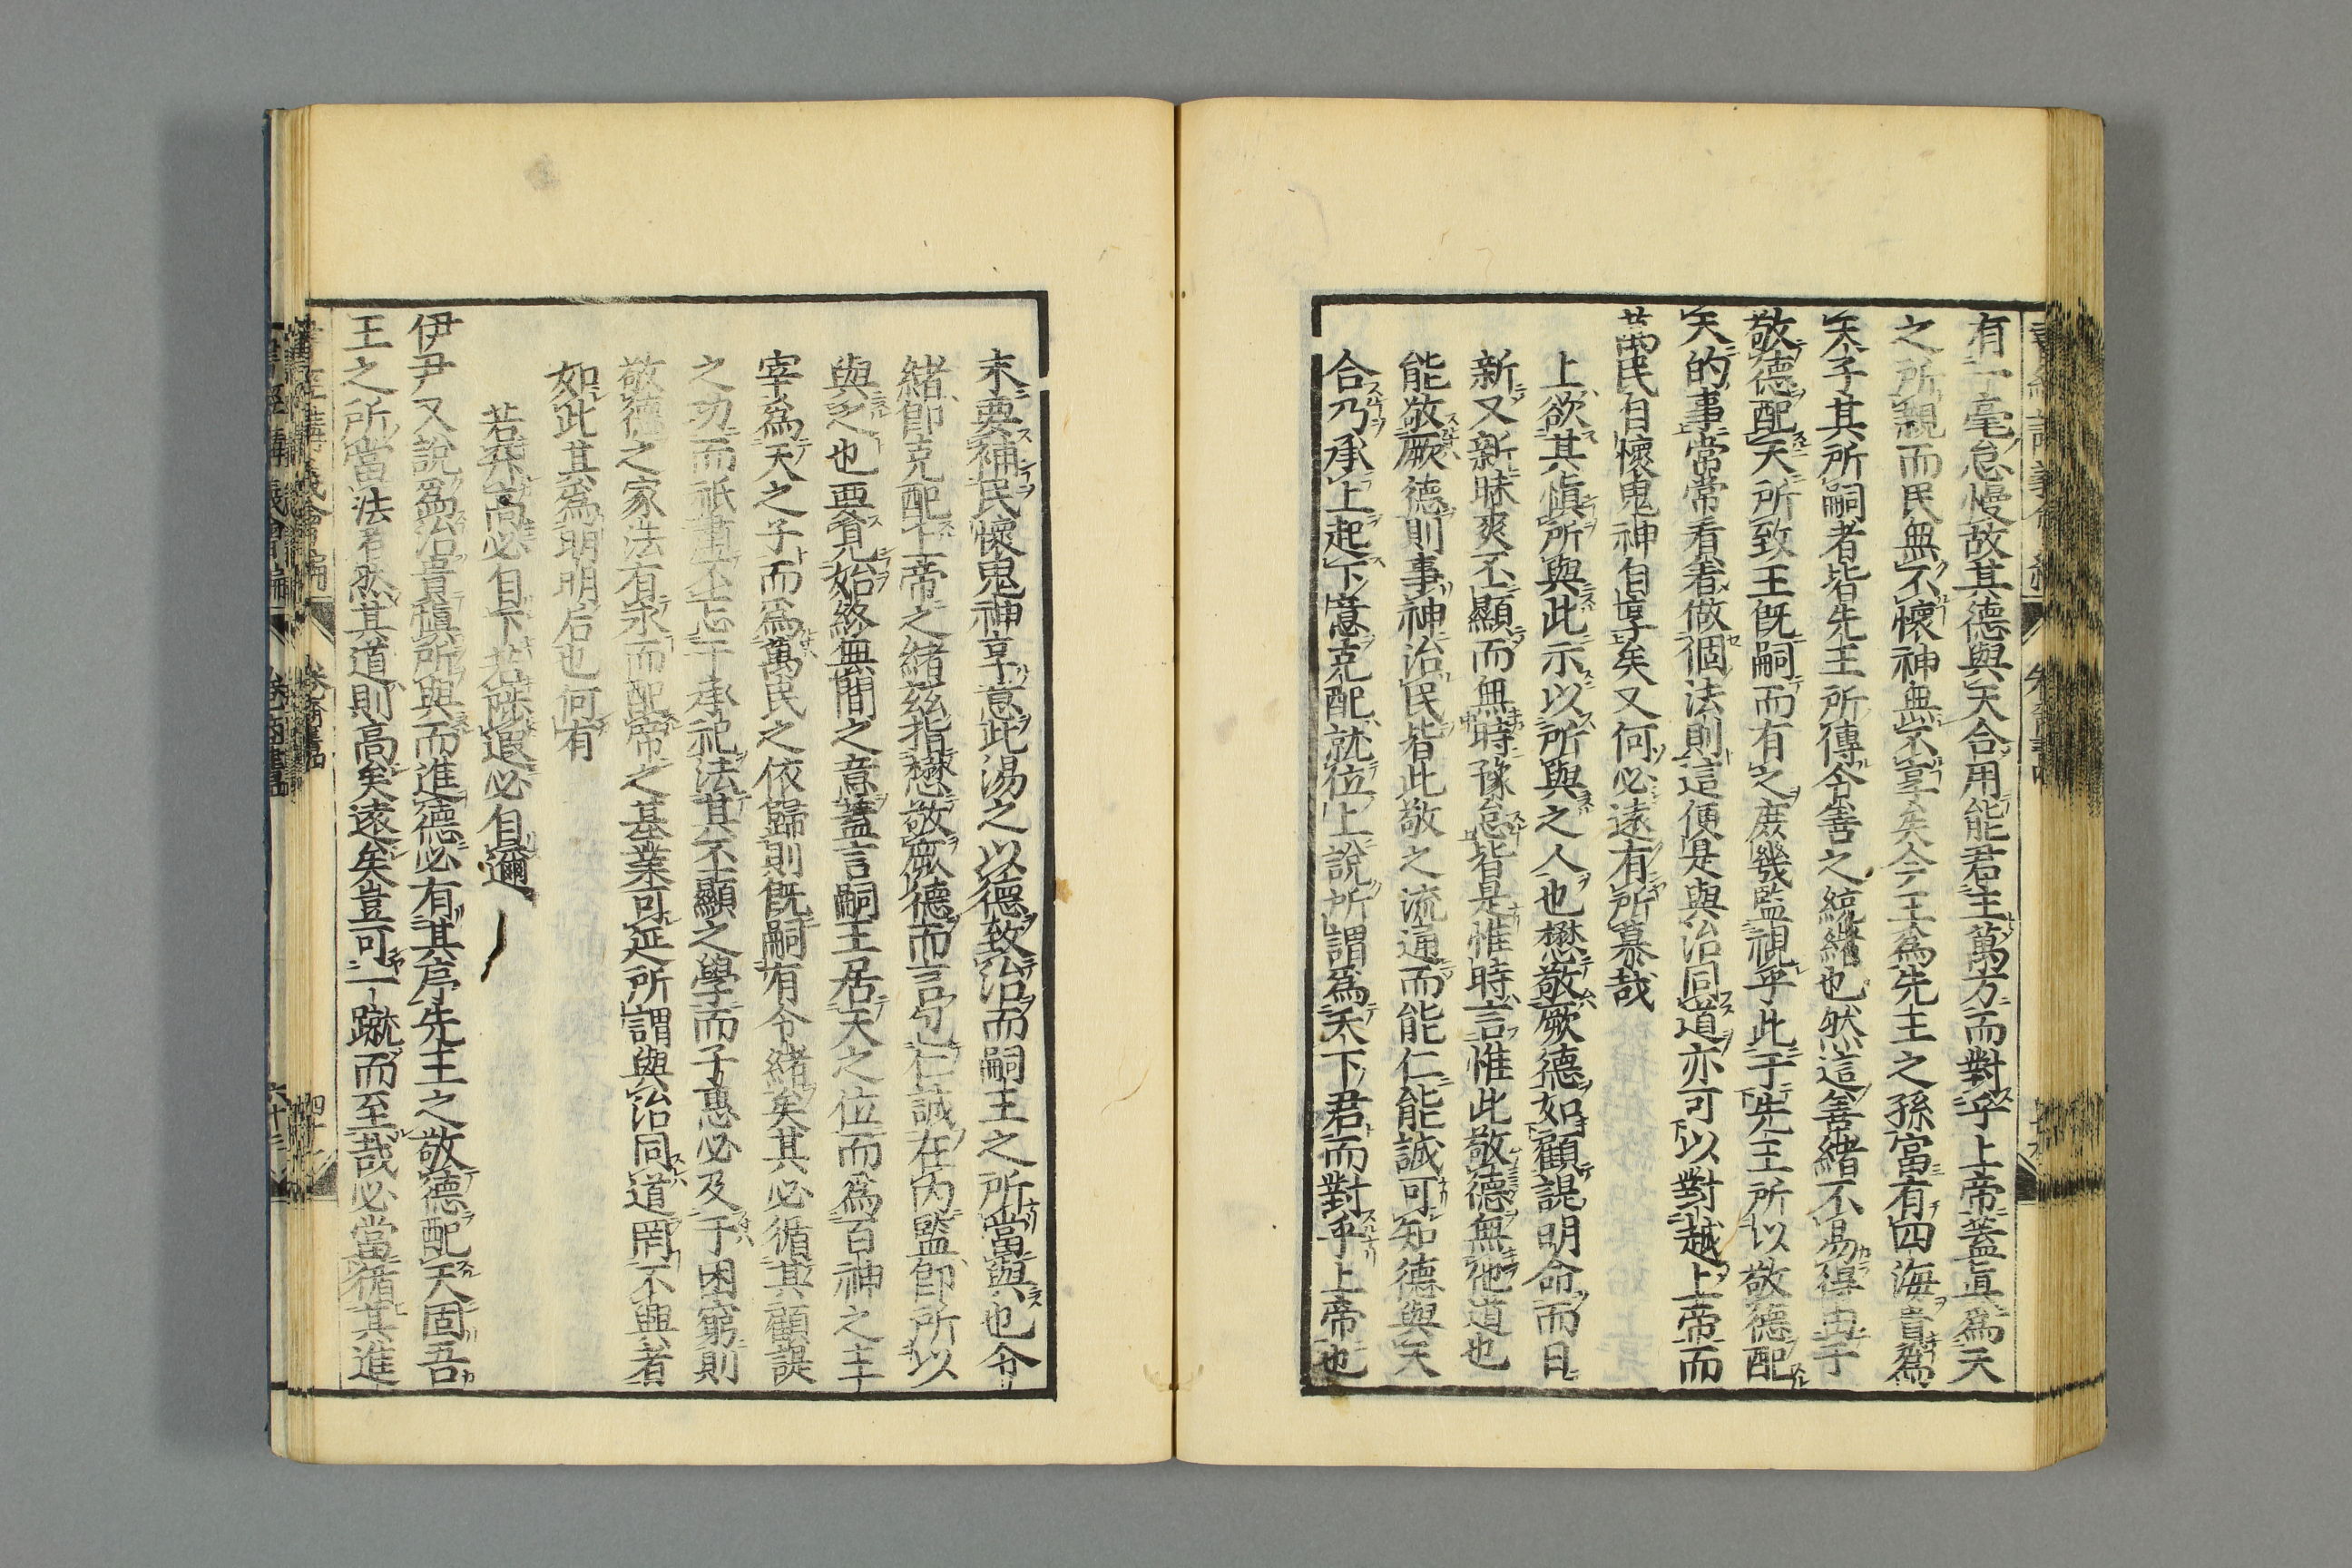 有一毫怠慢故其德與天合用能君主萬方而對乎上帝蓋眞爲天
之所親而民無不懷神無不享矣今王爲先王之孫富有四海貴爲
天子其所嗣者皆先王所傳令善之統緒也然這善緒不易得由于
敬德配天所致王旣嗣而有之庶幾監視乎此于先王所以敬德配
天的事常常看着做個法則這便是與治同道亦可以對越上帝而
萬民自懷鬼神自享矣又何必遠有所慕哉
上欲其愼所與此示以所與之人也懋敬厥德如顧諟明命而日
新又新昧爽丕顯而無時豫怠皆是惟時言惟此敬德無他道也
能敬厥德則事神治民皆此敬之流通而能仁能誠可知德與天
合乃承上起下意克配就位上說所謂爲天下君而對乎上帝也
末要補民懷鬼神享意此湯之以德致治而嗣王之所當與也令
緒卽克配上帝之緒茲指懋敬厥德而言包仁誠在內監卽所以
與之也要見始終無間之意蓋言嗣王居天之位而爲百神之主
宰爲天之子而爲萬民之依歸則旣嗣有令緒矣其必循其顧諟
之功而祇肅不忘于承祀法其丕顯之學而子惠必及于困窮則
敬德之家法有永而配帝之基業可延所謂與治同道罔不興者
如此其爲明明后也何有
若升高必自下若陟遐必自邇
伊尹又說爲治貴愼所與而進德必有其序先王之敬德配天固吾
王之所當法者然其道則高矣遠矣豈可一蹴而至哉必當循其進